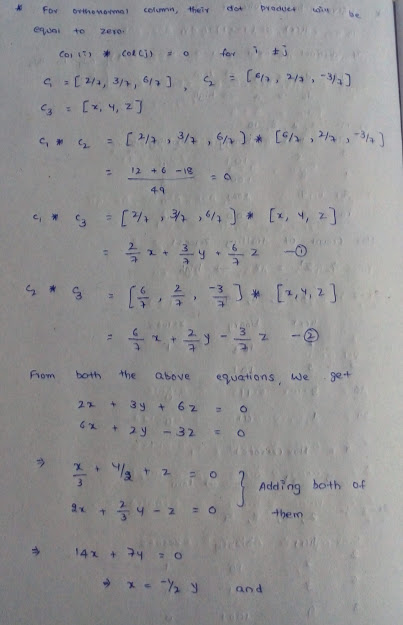 * For orthonormal column, their dot product will be
equal to zero.
Col(i) * Col(j) = 0 for i ≠ j
C₁ = [2/7, 3/7, 6/7], C₂ = [6/7, 2/7, -3/7]
C₃ = [x, y, z]
C₁ * C₂ = [2/7, 3/7, 6/7] * [6/7, 2/7, -3/7]
= (12 + 6 - 18)/49 = 0
C₁ * C₃ = [2/7, 3/7, 6/7] * [x, y, z]
= 2/7 x + 3/7 y + 6/7 z - ①
C₂ * C₃ = [6/7, 2/7, -3/7] * [x, y, z]
= 6/7 x + 2/7 y - 3/7 z - ②
From both the above equations, we get
2x + 3y + 6z = 0
6x + 2y - 3z = 0
⇒ x/3 + y/2 + z = 0 } Adding both of
2x + 2/3 y - z = 0 them
⇒ 14x + 7y = 0
⇒ x = -1/2 y and